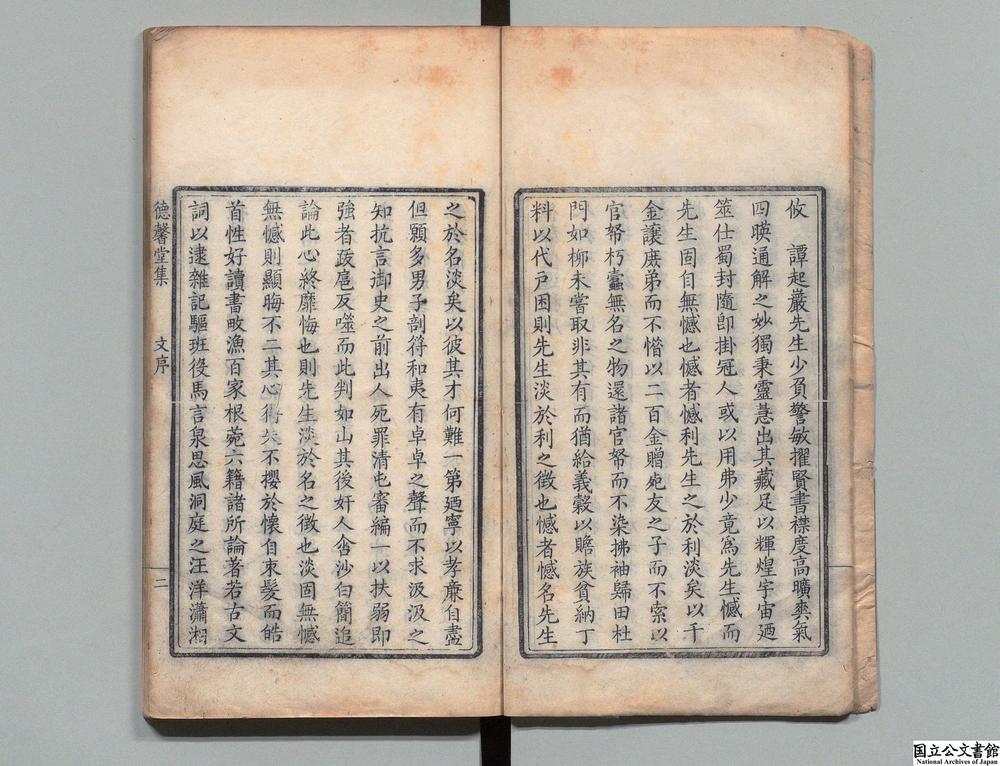 攸　譚起巖先生少負警敏擢賢書襟度高曠爽氣
四暎通解之妙獨秉靈慧出其藏足以輝煌宇宙廼
筮仕蜀封隨卽掛冠人或以用弗少竟爲先生憾而
先生固自無憾也憾者憾利先生之於利淡矣以千
金讓庶弟而不惜以二百金贈

友之子而不索以
官帑朽蠹無名之物還諸官帑而不染拂袖歸田杜
門如栁未嘗取非其有而猶給義穀以贍族貧納丁
料以代戸困則先生淡於利之徵也憾者憾名先生
之於名淡矣以彼其才何難一第廼寧以孝廉自盡
但願多男子剖符和夷有卓卓之聲而不求汲汲之
知抗言御史之前出人死罪清屯審編一以扶弱即
強者跋扈反噬而此判如山其後奸人含沙白簡追
論此心終靡悔也則先生淡於名之徵也淡固無憾
無憾則顯晦不二其心得失不攖於懷自束髮而皓
首性好讀書畋漁百家根菀六籍諸所論著若古文
詞以逮雜記驅班役馬言泉思風洞庭之汪洋瀟湘
德馨堂集　文序　二
国立公文書館
National Archives of Japan